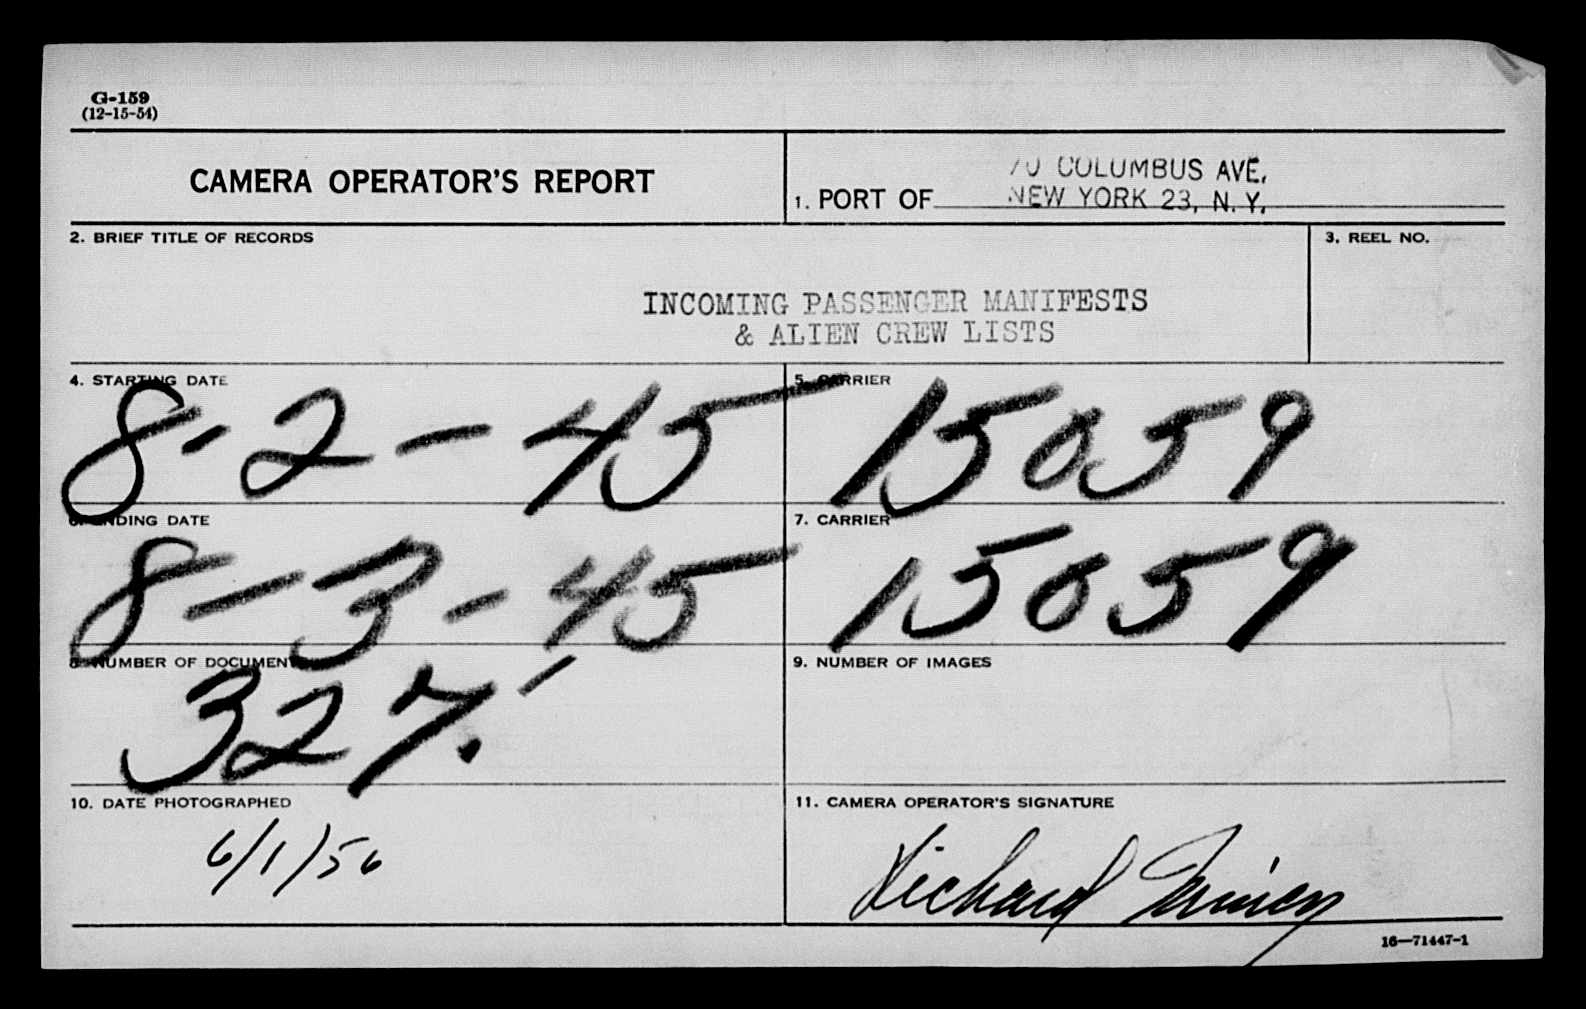 G-159
(12-15-54)
CAMERA OPERATOR'S REPORT
70 COLUMBUS AVE.
1. PORT OF NEW YORK 23, N. Y.
2. BRIEF TITLE OF RECORDS
3. REEL NO.
INCOMING PASSENGER MANIFESTS
& ALIEN CREW LISTS
4. STARTING DATE
5. CARRIER
8-2-45
15059
6. ENDING DATE
7. CARRIER
8-3-45
15059
8. NUMBER OF DOCUMENTS
9. NUMBER OF IMAGES
327.
10. DATE PHOTOGRAPHED
11. CAMERA OPERATOR'S SIGNATURE
6/1/56
Richard
16—71447-1